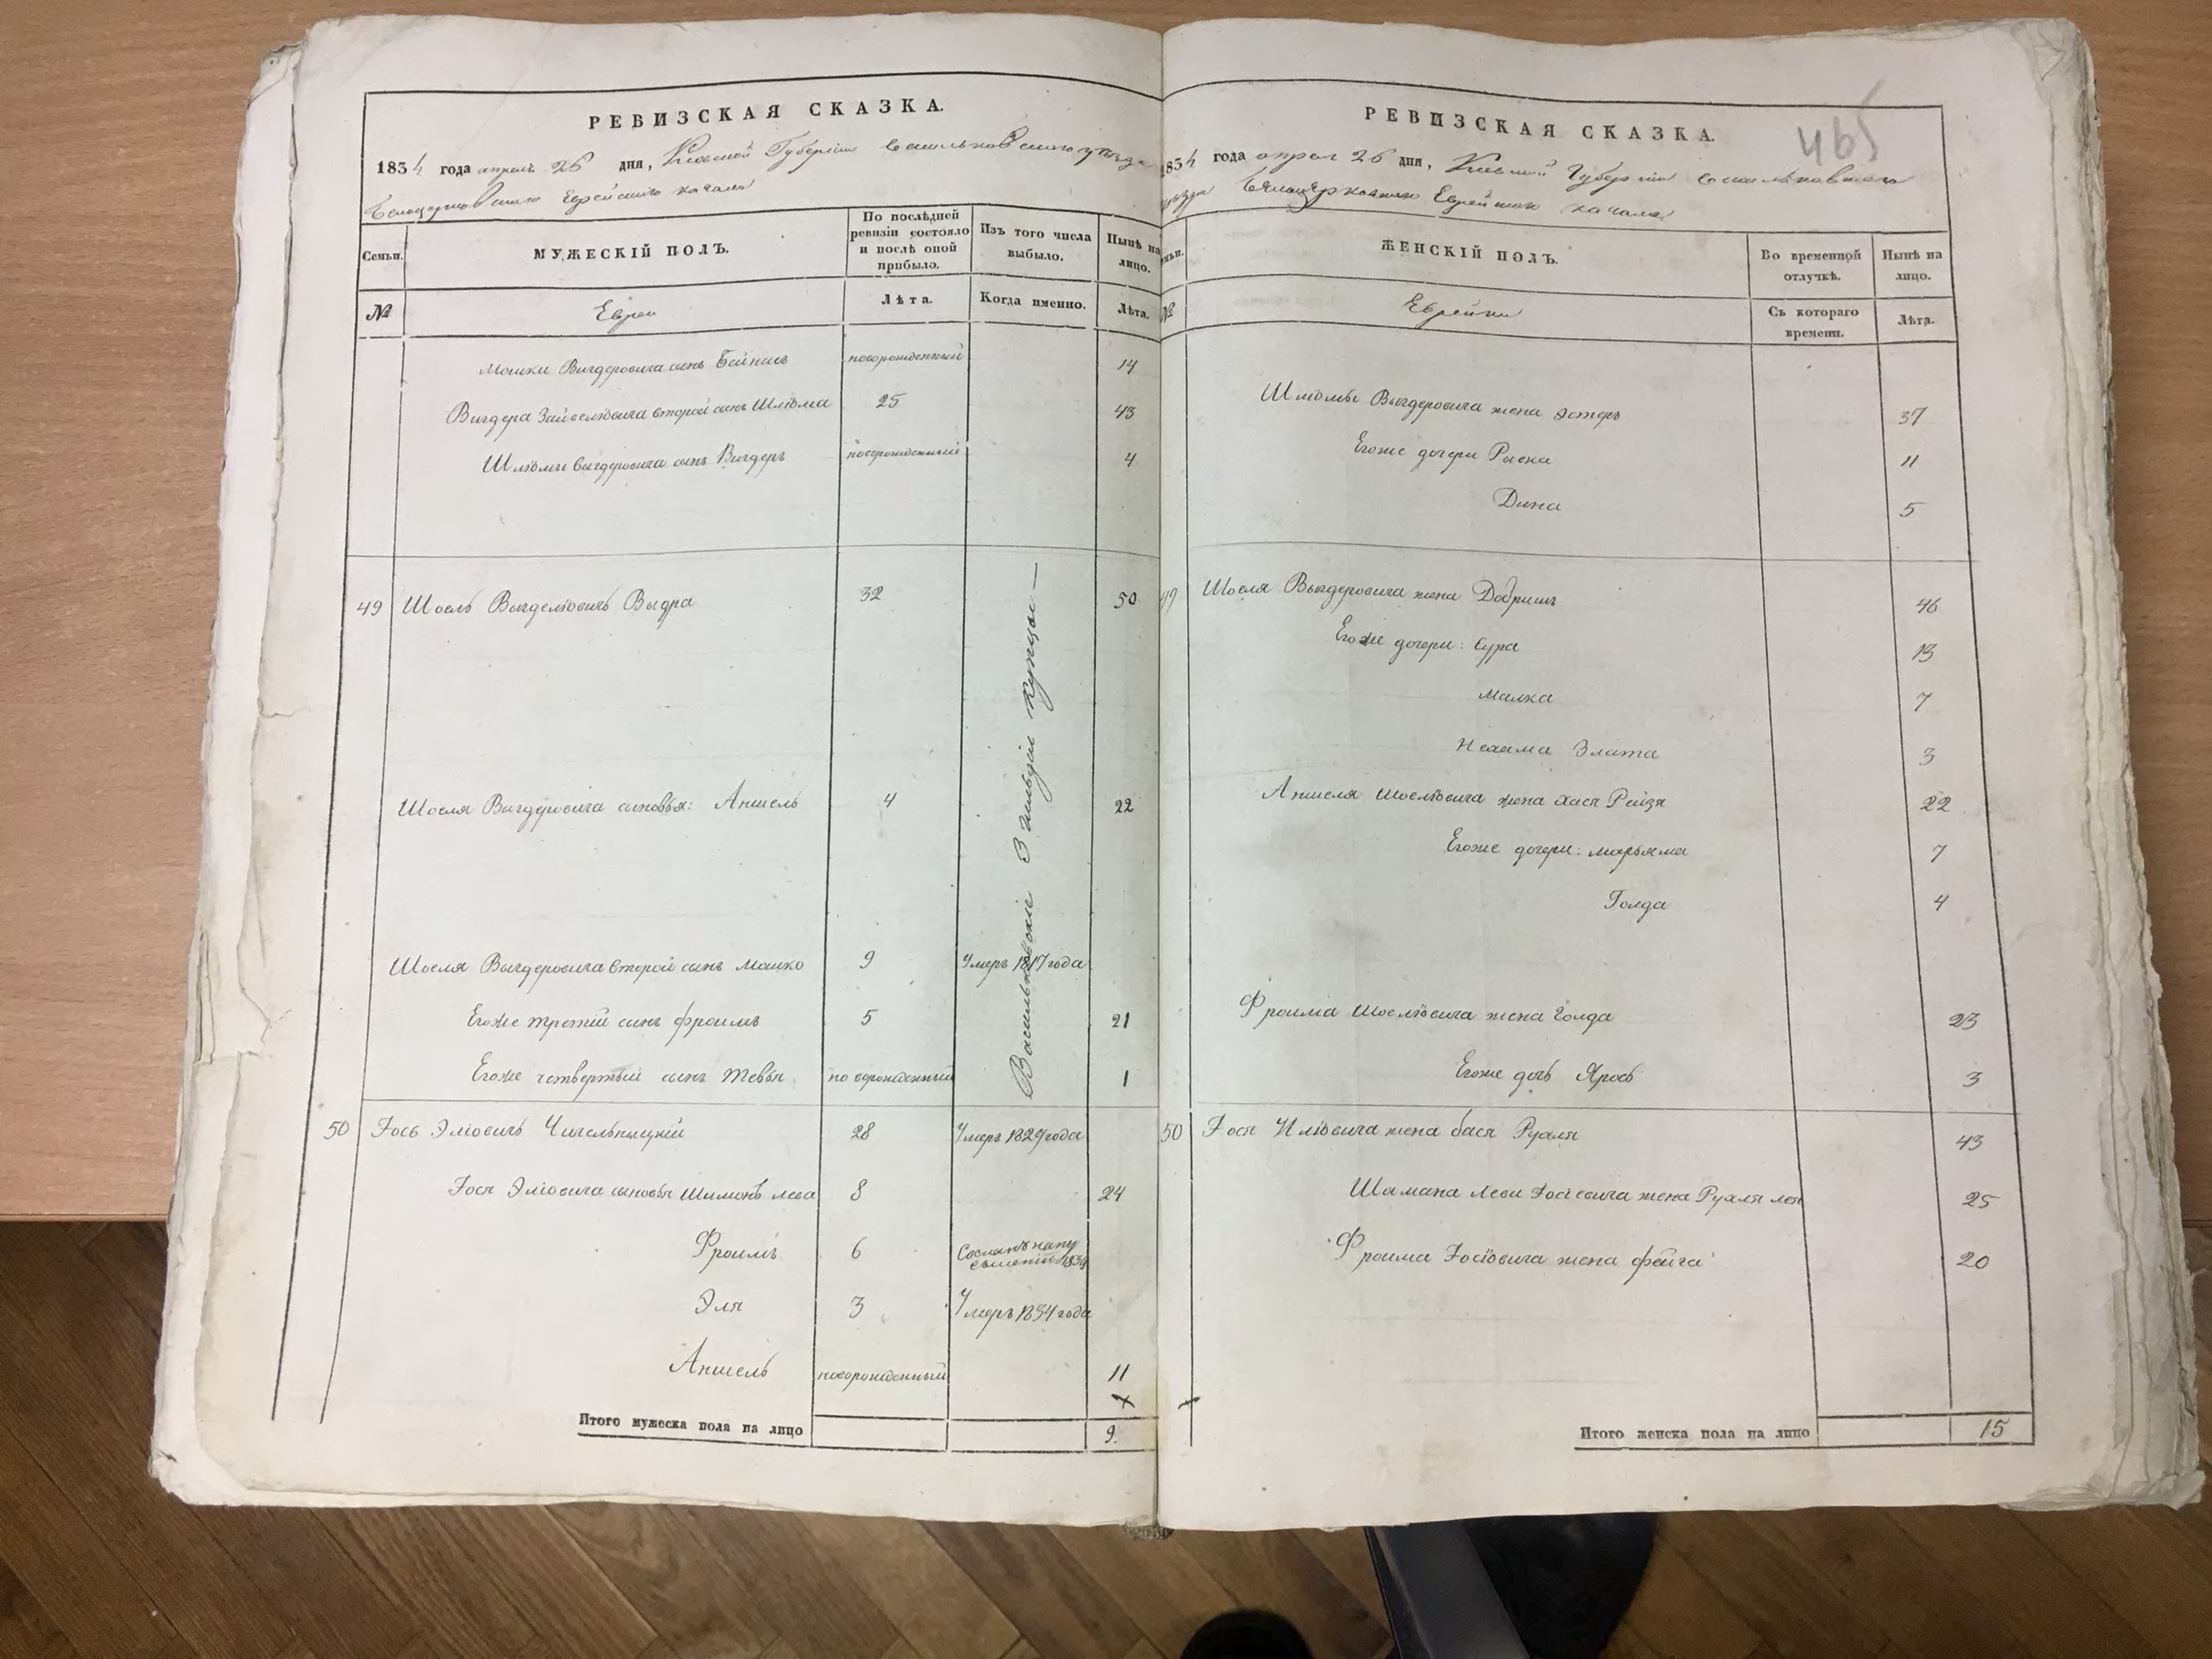 РЕВИЗСКАЯ СКАЗКА.
1834 года апреля 26 дня, Киевской Губернии Васильковского уезда
Белоцерковского Еврейского кагала
Семьи.
МУЖЕСКІЙ ПОЛЪ.
По послѣдней ревизіи состояло и послѣ оной прибыло.
Изъ того числа выбыло.
Нынѣ на лицо.
№
Евреи
Лѣта.
Когда именно.
Лѣта.
Мошки Выгдеровича сынъ Бейнисъ новорожденный 14
Выгдера Зайвелiовича второй сынъ Шлiома 25 43
Шлiомы Выгдеровича сынъ Выгдеръ новорожденный 4
49 Шоель Выгделiовичъ Выдра 32 50
Васильковскiе 3 гильдiи Купцы —
Шоеля Выгдеровича сыновья: Аншель 4 22
Шоеля Выгдеровича второй сынъ Мошко 9 Умеръ 1817 года
Егоже третiй сынъ Фроимъ 5 21
Егоже четвертый сынъ Тевья новорожденный 1
50 Iось Элiовичъ Чигельницкiй 28 Умеръ 1829 года
Iося Элiовича сыновья Шимонъ Лева 8 24
Фроимъ 6 Сосланъ на 1834
Эля 3 Умеръ 1834 года
Аншель новорожденный 11
Итого мужеска пола на лицо 9.
РЕВИЗСКАЯ СКАЗКА.
465
1834 года апреля 26 дня, Киевской Губернии Васильковского
уезда Белоцерковского Еврейского кагала
Семьи.
ЖЕНСКІЙ ПОЛЪ.
Во временной отлучкѣ.
Нынѣ на лицо.
№
Еврейки
Съ котораго времени.
Лѣта.
Шлiомы Выгдеровича жена Эстеръ 37
Егоже дочери Рыська 11
Дина 5
49 Шоеля Выгдеровича жена Добришъ 46
Егоже дочери: Сура 13
Малка 7
Нехама Злата 3
Аншеля Шоелiовича жена Хася Рейзя 22
Егоже дочери: Марьяма 7
Голда 4
Фроима Шоелiовича жена Голда 23
Егоже дочь Ярось 3
50 Iося Илiовича жена Бася Рухля 43
Шимана Леви Iосiевича жена Рухля Лея 25
Фроима Iосiовича жена Фейга 20
Итого женска пола на лицо 15